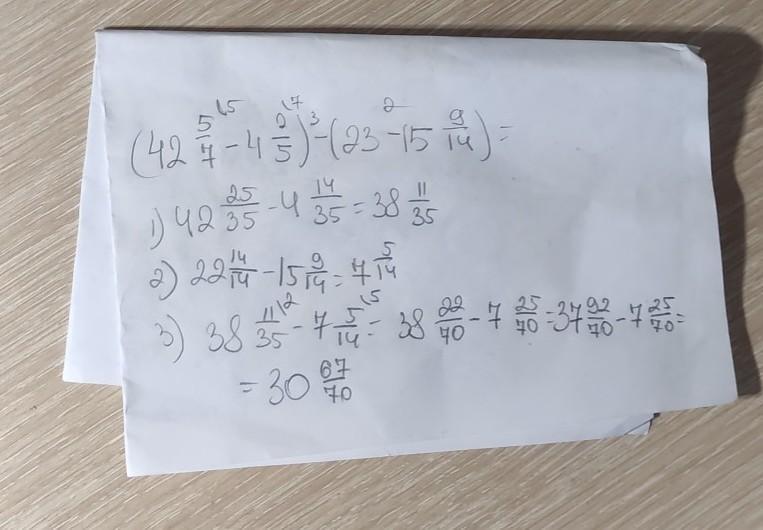 (42 5/7 \5 - 4 2/5 \7) 3 - (23 2 - 15 9/14) =
1) 42 25/35 - 4 14/35 = 38 11/35
2) 22 14/14 - 15 9/14 = 7 5/14
3) 38 11/35 \2 - 7 5/14 \5 = 38 22/70 - 7 25/70 = 37 92/70 - 7 25/70 =
= 30 67/70